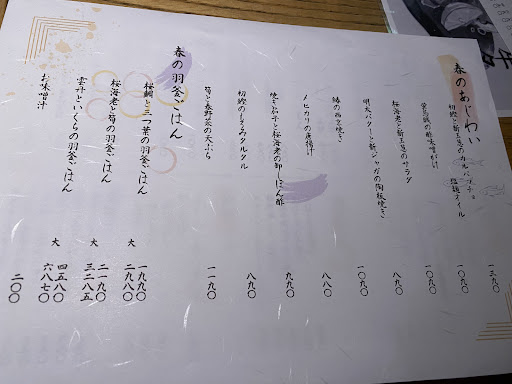 春のあじわい
初鰹と新玉葱のカルパッチョ 塩麹オイル 一三九〇
一〇九〇
桜海老と新玉葱のサラダ 八九〇
明太バターと新ジャガの陶板焼き 一〇九〇
鰆の西京焼き 八八〇
ノビカリの唐揚げ
焼き茄子と桜海老の卸しぽん酢 九九〇
初鰹のもろみタルタル 八九〇
筍と春野菜の天ぷら 一一九〇
春の羽釜ごはん
桜鯛と三つ葉の羽釜ごはん 一九九〇
大 二九八〇
桜海老と筍の羽釜ごはん 二一九〇
大 三二八五
雲丹といくらの羽釜ごはん 四五八〇
大 六八七〇
お味噌汁 二〇〇